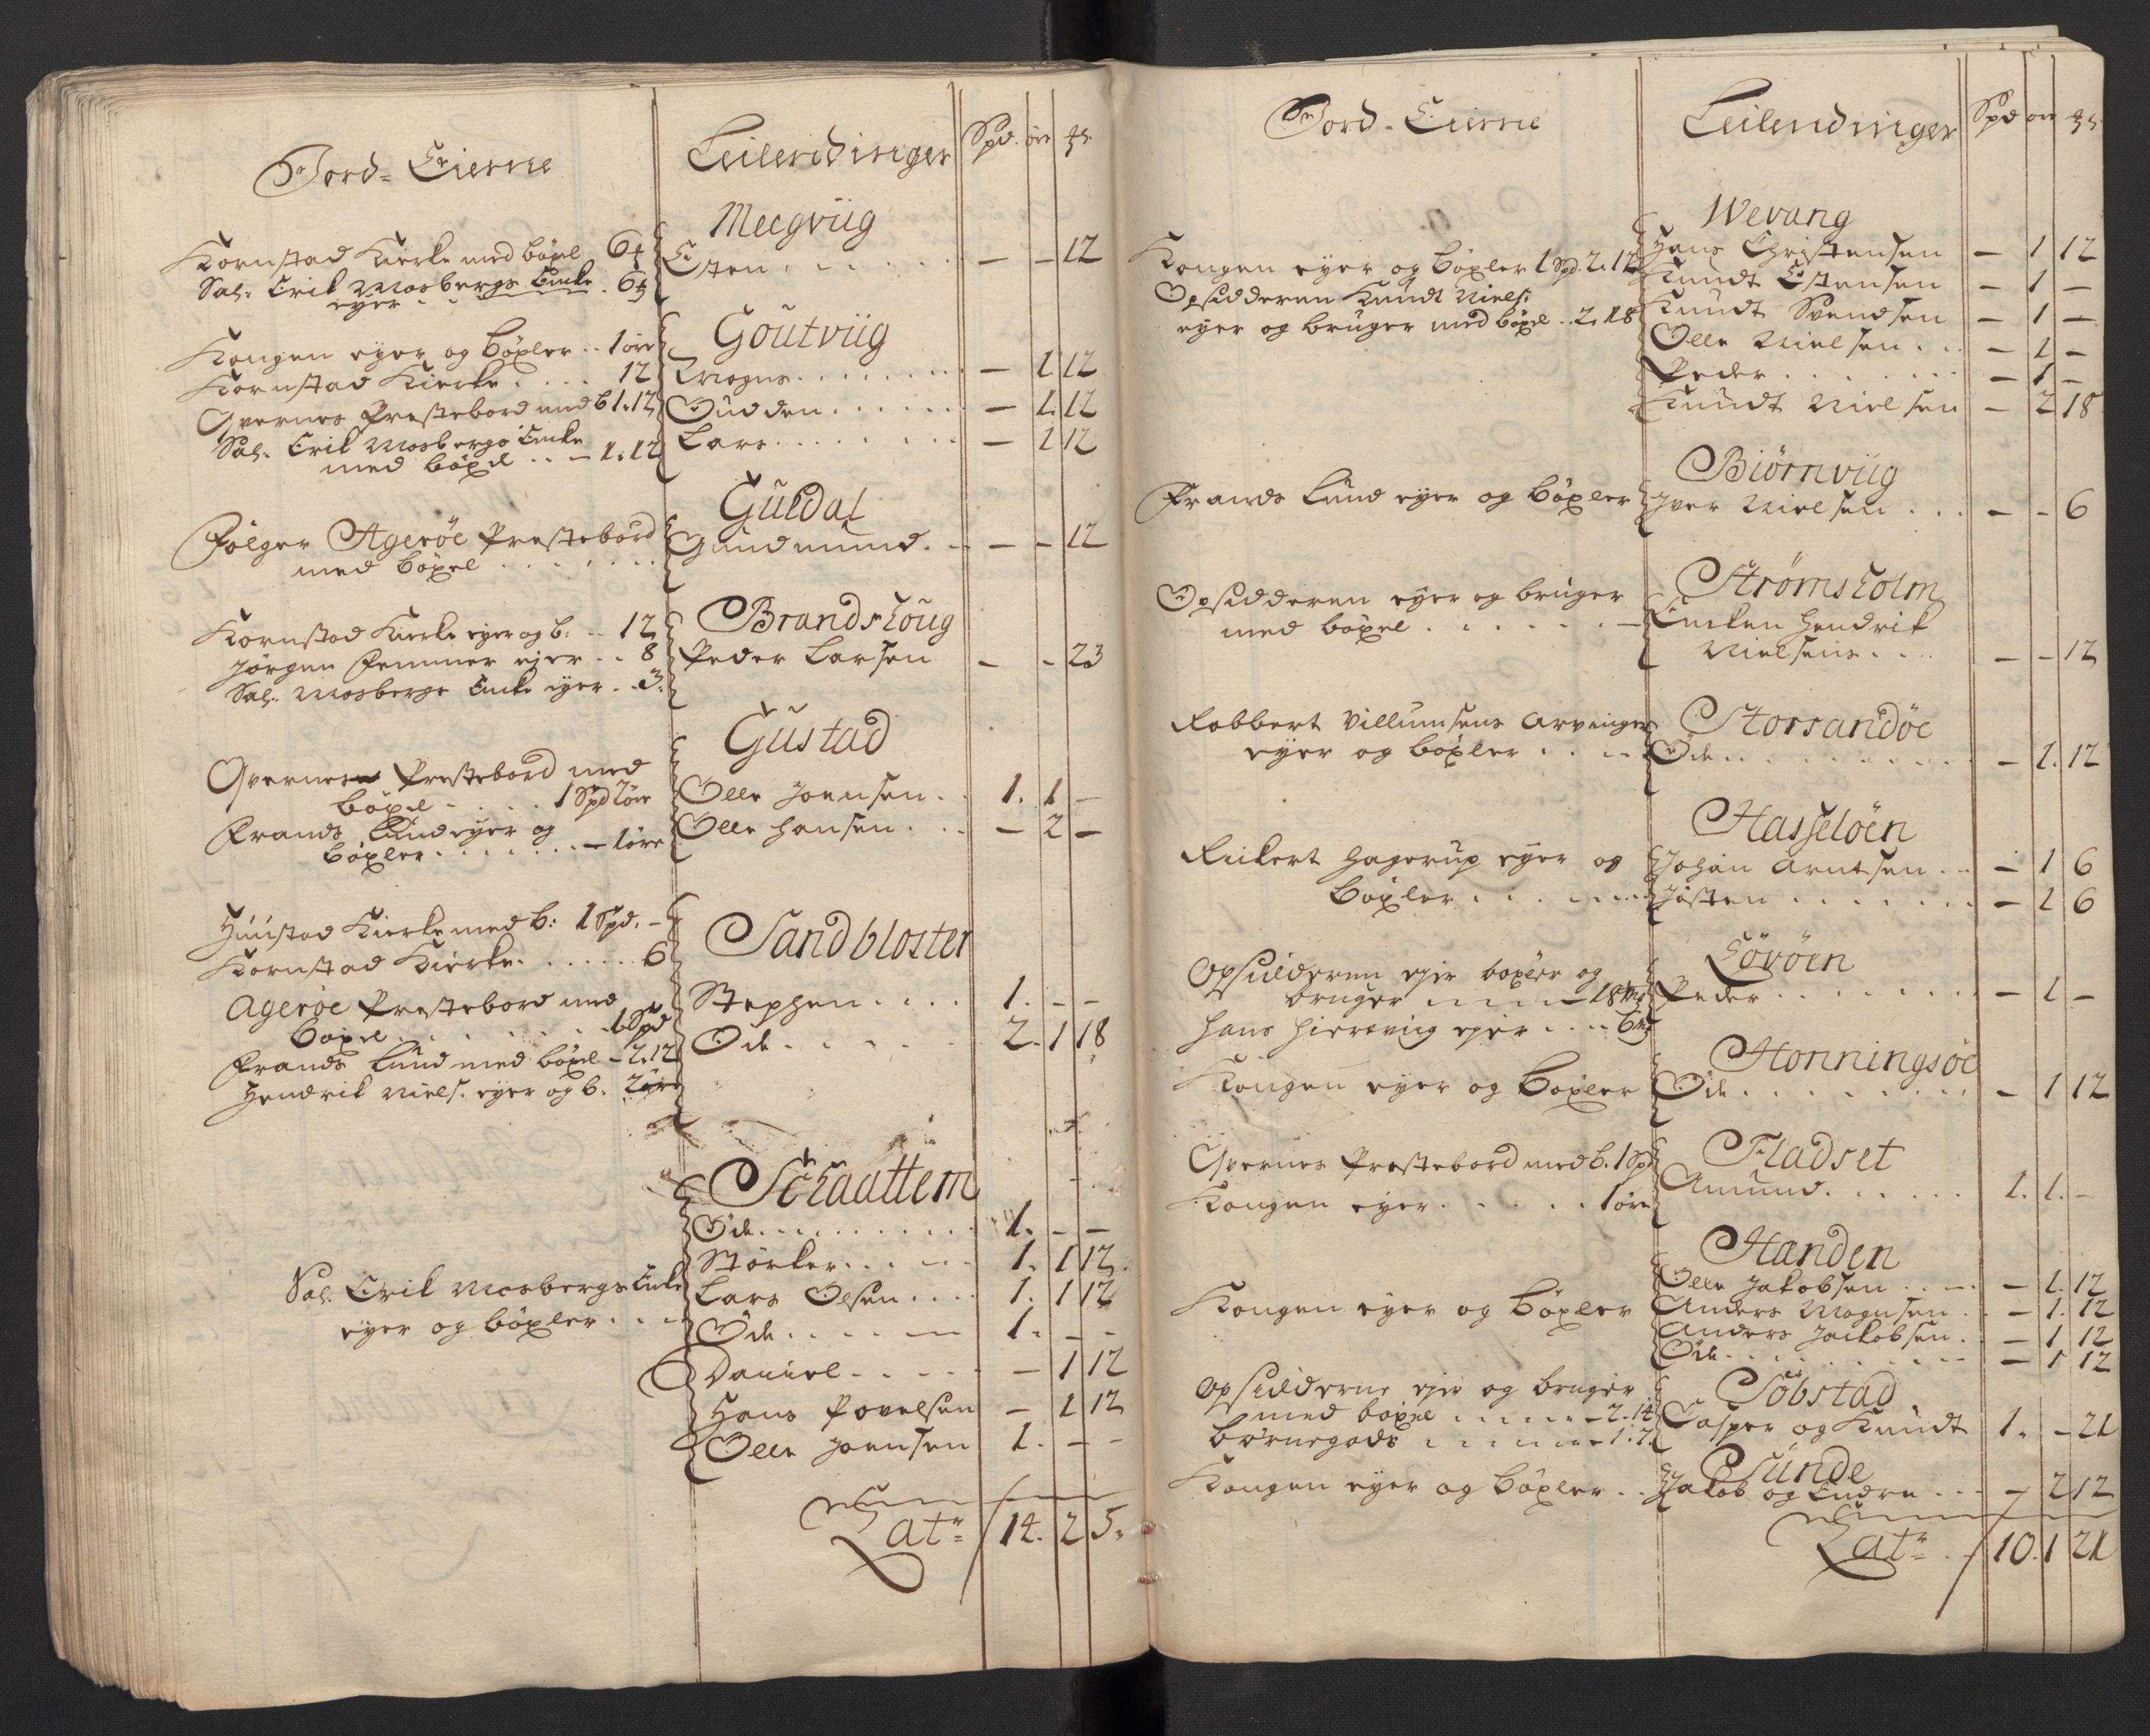 Jord-Eierne Leilendinger Spd. öre
Meegviig
Kornstad Kierke med böxel 6
Sal: Erik Mosbergs Enke 6
eyer
Esten - - 12
Goutviig
Kongen eyer og böxler 1 öre
Kornstad Kierke 12
Qvernes Prestebord med b 1.12
Sal: Erik Mosbergs Enke
med böxel 1.12
Mogns - 1 12
Gudden - 1. 12
Lars - 1 12
Guldal
Fölger Ageröe Prestebord
med böxel
Gundmund - - 12
Brandshoug
Kornstad Kierke eyer og b: 12
Jörgen Femmer eier 8
Sal: Mosbergs Enke eyer 3.
Peder Larsen - - 23
Gustad
Qvernes Prestebord med
böxel 1 Spd 2 öre
Frands Lund eyer og
böxler 1 öre
Olle Joensen 1. 1 -
Olle Hansen - 2 -
Sandbloster
Huustad Kierke med b: 1 Spd. -
Kornstad Kierke 6
Ageröe Prestebord med
böxel 1 Spd
Frands Lund med böxel - 2.12
Hendrik Niels: eyer og b. 2 öre
Stephen 1. - -
Öde 2. 1 18
Schaattem
Sal: Erik Mosbergs Enke
eyer og böxler
Öde 1. - -
Störker 1. 1 12
Lars Olsen 1. 1 12
Öde 1. - -
Daniel - 1 12
Hans Povelsen - 1 12
Olle Joensen 1. - -
Latr 14. 2 5.
Jord-Eierne Leilendinger Spd ör
Wevang
Kongen eyer og böxler 1 Spd. 2. 12
Opsidderen Knudt Niels:
eyer og bruger med böxel 2. 18
Hans Christensen - 1 12
Knudt Estensen - 1 -
Knudt Svendsen - 1 -
Olle Nielsen - 1 -
Peder - 1 -
Knudt Nielsen - 2 18
Biörnviig
Frands Lund eyer og böxler
Iver Nielsen - - 6
Strömsholm
Opsidderen eyer og bruger
med böxel
Enken Hendrik
Nielsens - - 12
Storsandöe
Robbert Villumsens Arvinger
eyer og böxler
Öde - 1. 12
Hasselöen
Rickert Hagerup eyer og
böxler
Johan Arntsen - 1 6
Josten - 1 6
Lövöen
Opsidderen ejer boxler og
bruger 18
Hans Hiereviig ejer 6
Peder - 1 -
Honningsöe
Kongen eyer og boxler
Öde - 1 12
Fladset
Qvernes Prestebord med b. 1 Spd
Kongen eyer 1 öre
Amund 1. 1. -
Handen
Kongen eyer og böxler
Olle Jakobsen - 1. 12
Anders Mognsen - 1. 12
Anders Jackobsen - 1 12
Öde - 1 12
Söbstad
Opsidderne ejer og bruger
med böxel 2.14
börnegods 1.7
Casper og Knudt 1. - 21
Sunde
Kongen eyer og böxler
Jakob og Endre - 2 12
Latr 10. 1 21